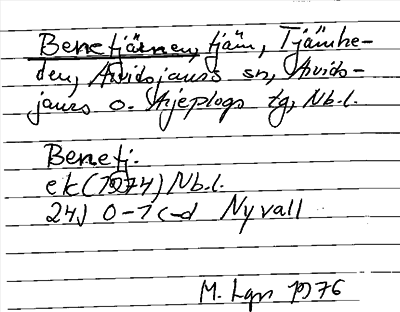 Benetjärnen, tjärn, Tjärnhe-
den, Arvidsjaurs sn, Arvids-
jaurs o. Arjeplogs tg, Nb.l.
Benetj.
ek (1974) Nb.l.
24J 0-1 c-d Nyvall
M. Lgn 1976